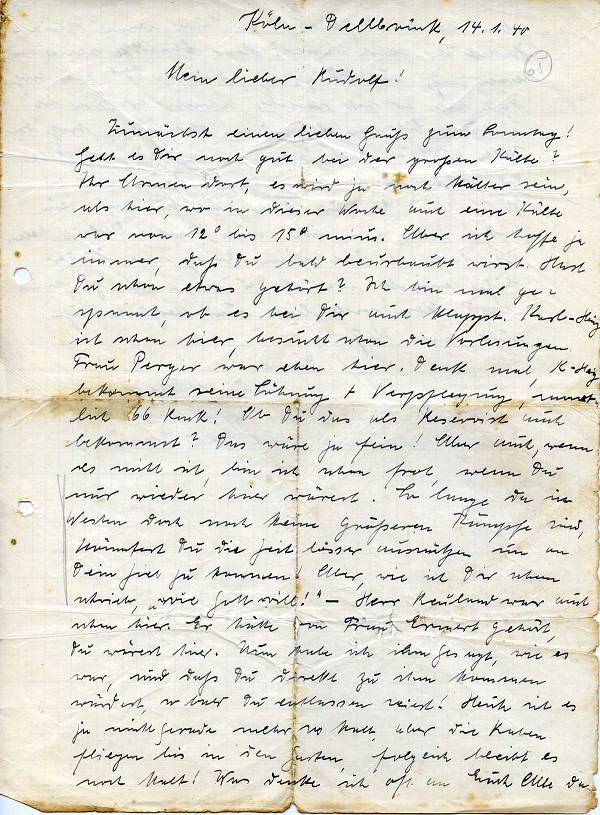 Köln-Dellbrück, 14.1.40
65
Mein lieber Rudolf!
Zunächst einen lieben Gruß zum Sonntag!
Geht es Dir noch gut bei der großen Kälte?
Ihr Armen dort, es wird ja noch kälter sein,
als hier, wo in dieser Woche auch eine Kälte
war von 12° bis 15° minus. Aber ich hoffe ja
immer, daß Du bald beurlaubt wirst. Hast
Du schon etwas gehört? Ich bin mal ge-
spannt, ob es bei Dir auch klappt. Karl-Heinz
ist schon hier, besucht schon die Vorlesungen.
Frau Perger war eben hier. Denk mal, K-Heinz
bekommt seine Löhnung + Verpflegung, monat-
lich 66 Mark! Ob Du das als Reservist auch
bekommst? Das wäre ja fein! Aber auch, wenn
es nicht ist, bin ich schon froh, wenn Du
nur wieder hier wärest. So lange da im
Westen doch noch keine größeren Kämpfe sind,
könntest Du die Zeit besser ausnützen um an
Dein Ziel zu kommen! Aber, wie ich Dir schon
schrieb, "wie Gott will!" – Herr Neuland war auch
schon hier. Er hatte von Frau Ermert gehört,
Du wärest hier. Nun habe ich ihm gesagt, wie es
war, und daß Du direkt zu ihm kommen
würdest, sobald Du entlassen seiest! Heute ist es
ja nicht gerade mehr so kalt, aber die Raben
fliegen bis in den Garten, folglich bleibt es
noch kalt! Was denke ich oft an Euch Alle da